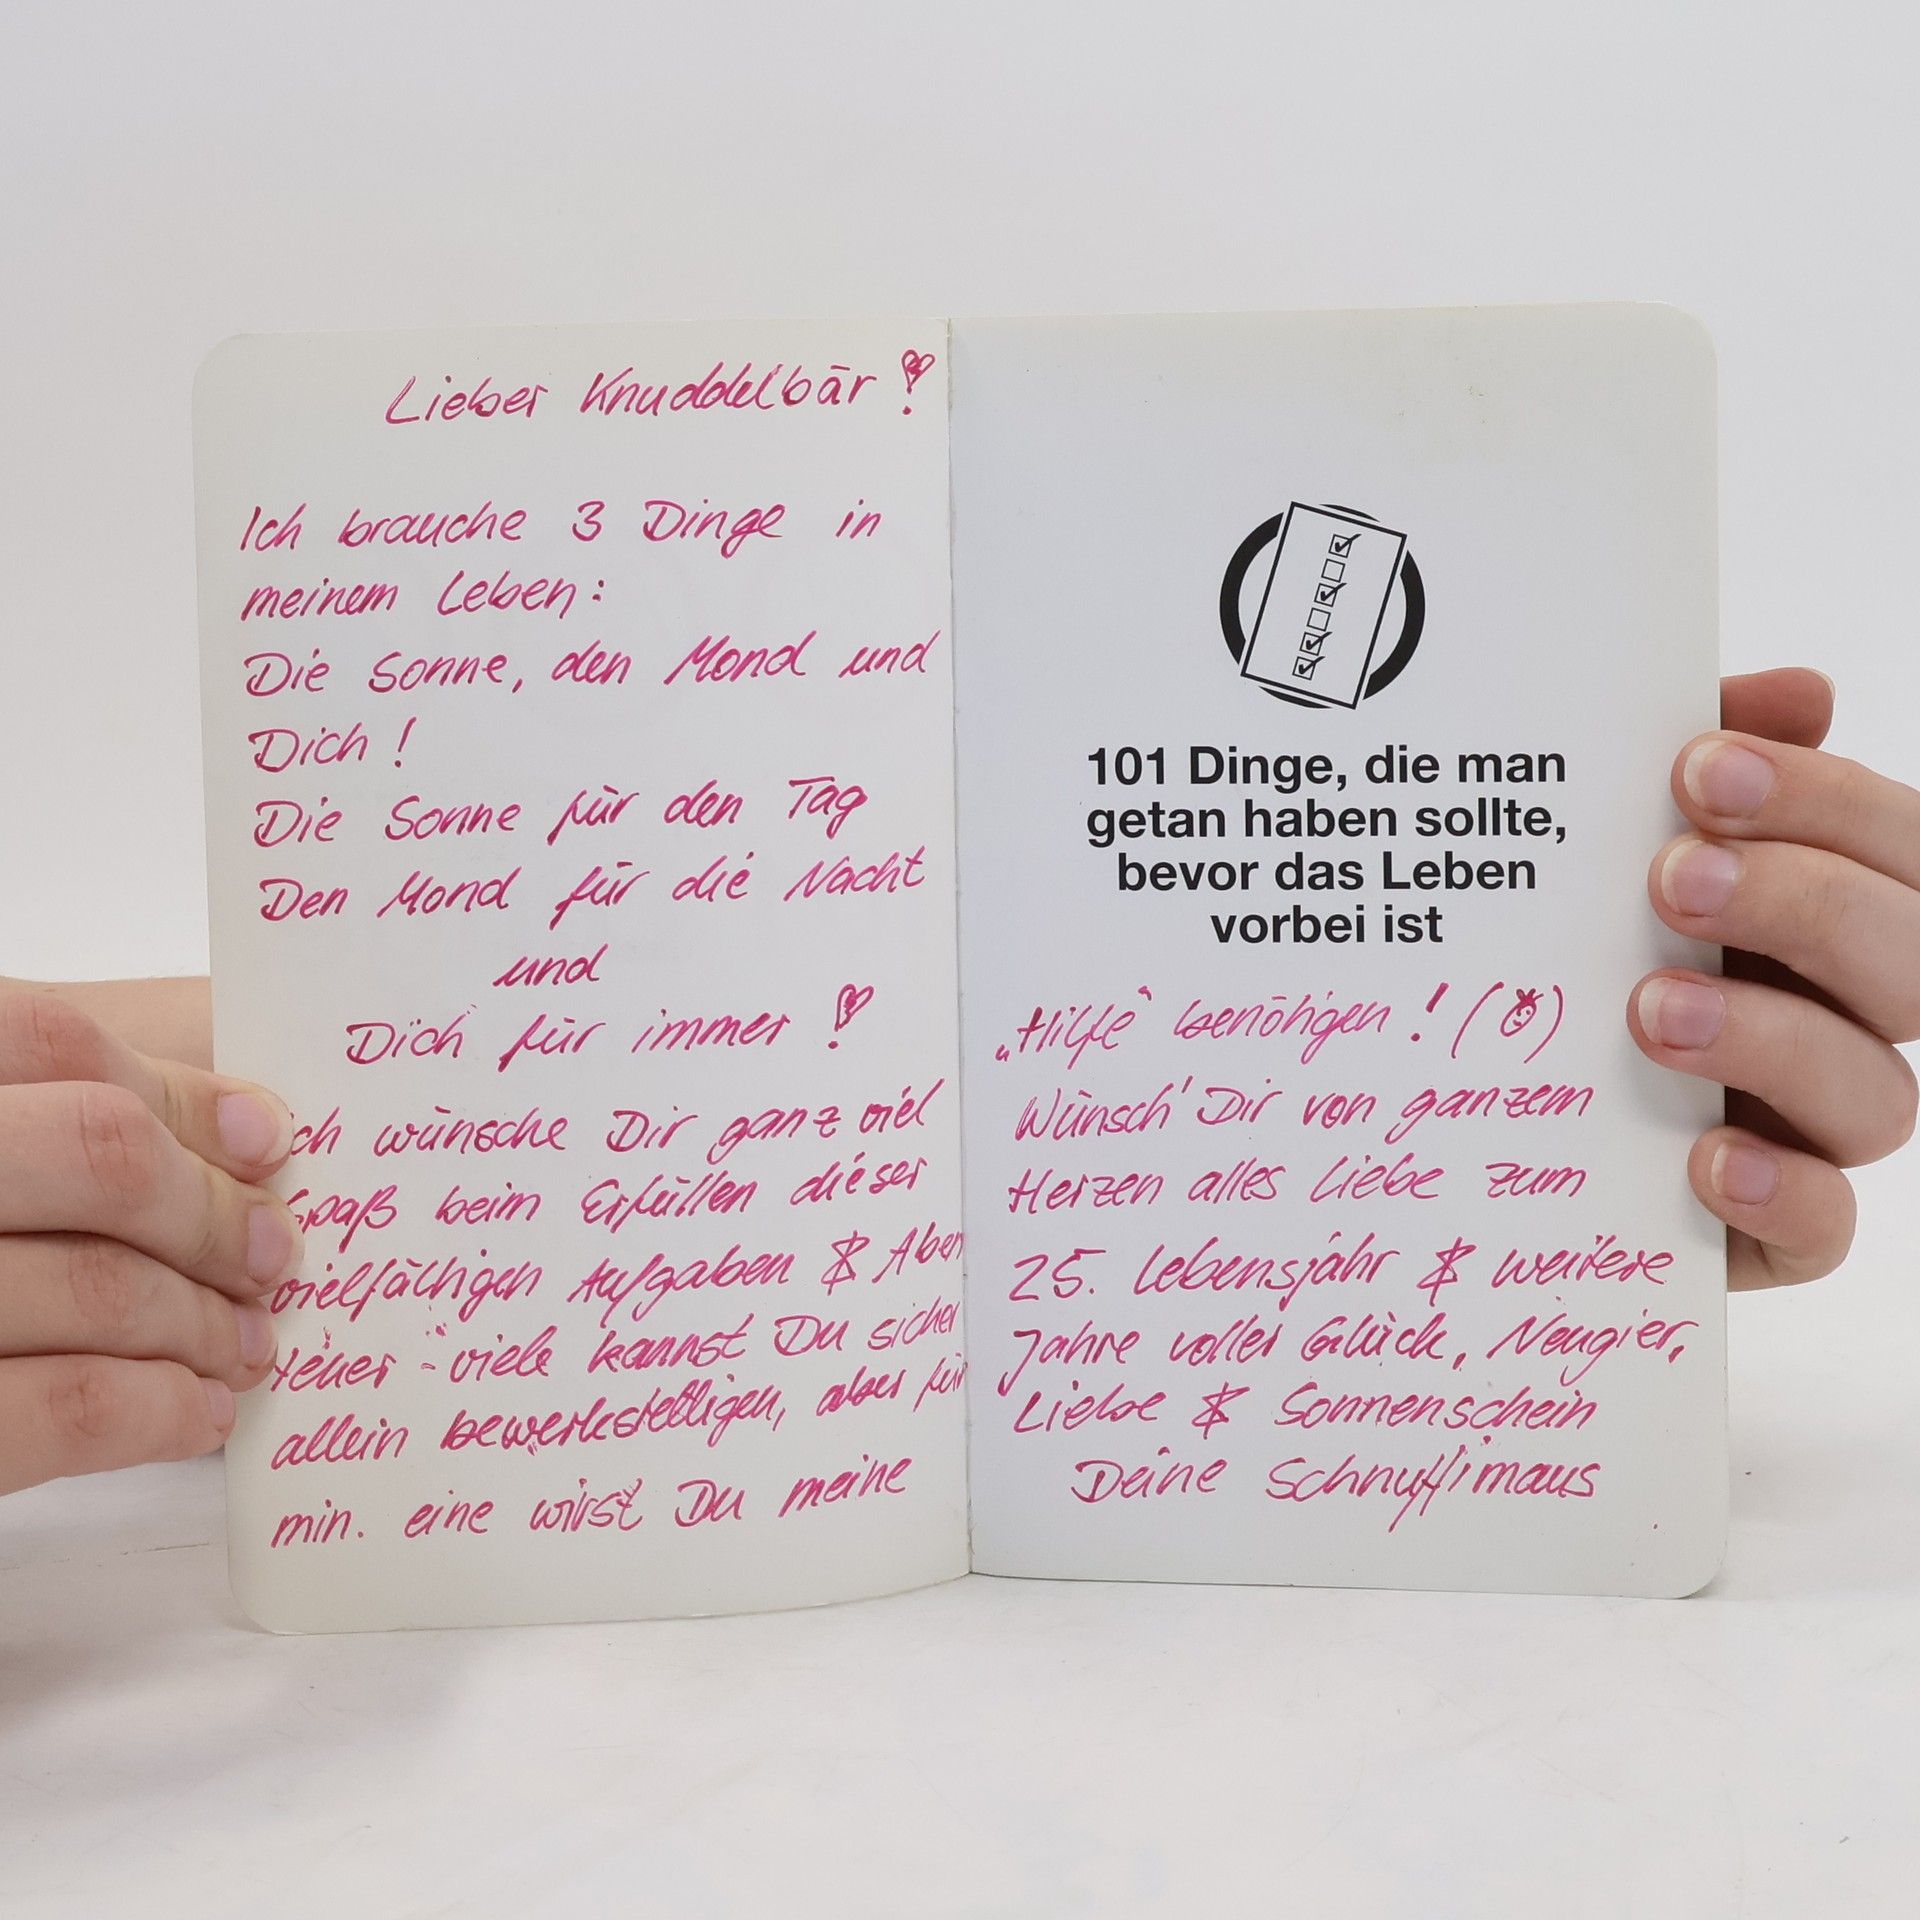 Lieber Knuddelbär !
Ich brauche 3 Dinge in
meinem Leben:
Die Sonne, den Mond und
Dich !
Die Sonne für den Tag
Den Mond für die Nacht
und
Dich für immer !
ch wünsche Dir ganz viel
Spaß beim Erfüllen dieser
vielfältigen Aufgaben & Aben
teuer - viele kannst Du sicher
allein bewerkstelligen, aber für
min. eine wirst Du meine
101 Dinge, die man
getan haben sollte,
bevor das Leben
vorbei ist
„Hilfe“ benötigen ! (☺)
Wünsch' Dir von ganzem
Herzen alles Liebe zum
25. Lebensjahr & weitere
Jahre voller Glück, Neugier,
Liebe & Sonnenschein
Deine Schnuffimaus